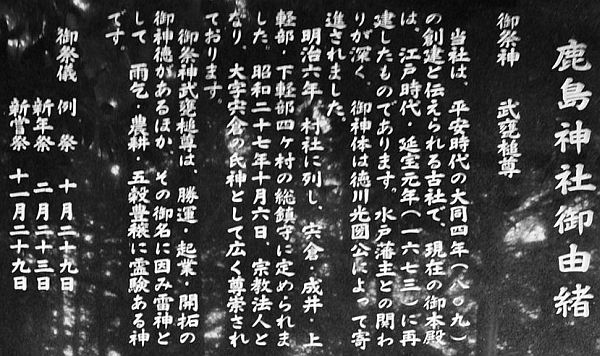 鹿島神社御由緒
御祭神　武甕槌尊
当社は、平安時代の大同四年（八〇九）
の創建と伝えられる古社で、現在の御本殿
は、江戸時代・延宝元年（一六七三）に再
建したものであります。水戸藩主との関わ
りが深く、御神体は徳川光圀公によって寄
進されました。
明治六年、村社に列し、宍倉・成井・上
軽部・下軽部四ヶ村の総鎮守に定められま
した。昭和二十七年十月六日、宗教法人と
なり、大字宍倉の氏神として広く尊崇され
ております。
御祭神武甕槌尊は、勝運・起業・開拓の
御神徳があるほか、その御名に因み雷神と
して、雨乞・農耕・五穀豊穣に霊験ある神
です。
御祭儀　例祭　十月二十九日
新年祭　二月二十三日
新嘗祭　十一月二十九日